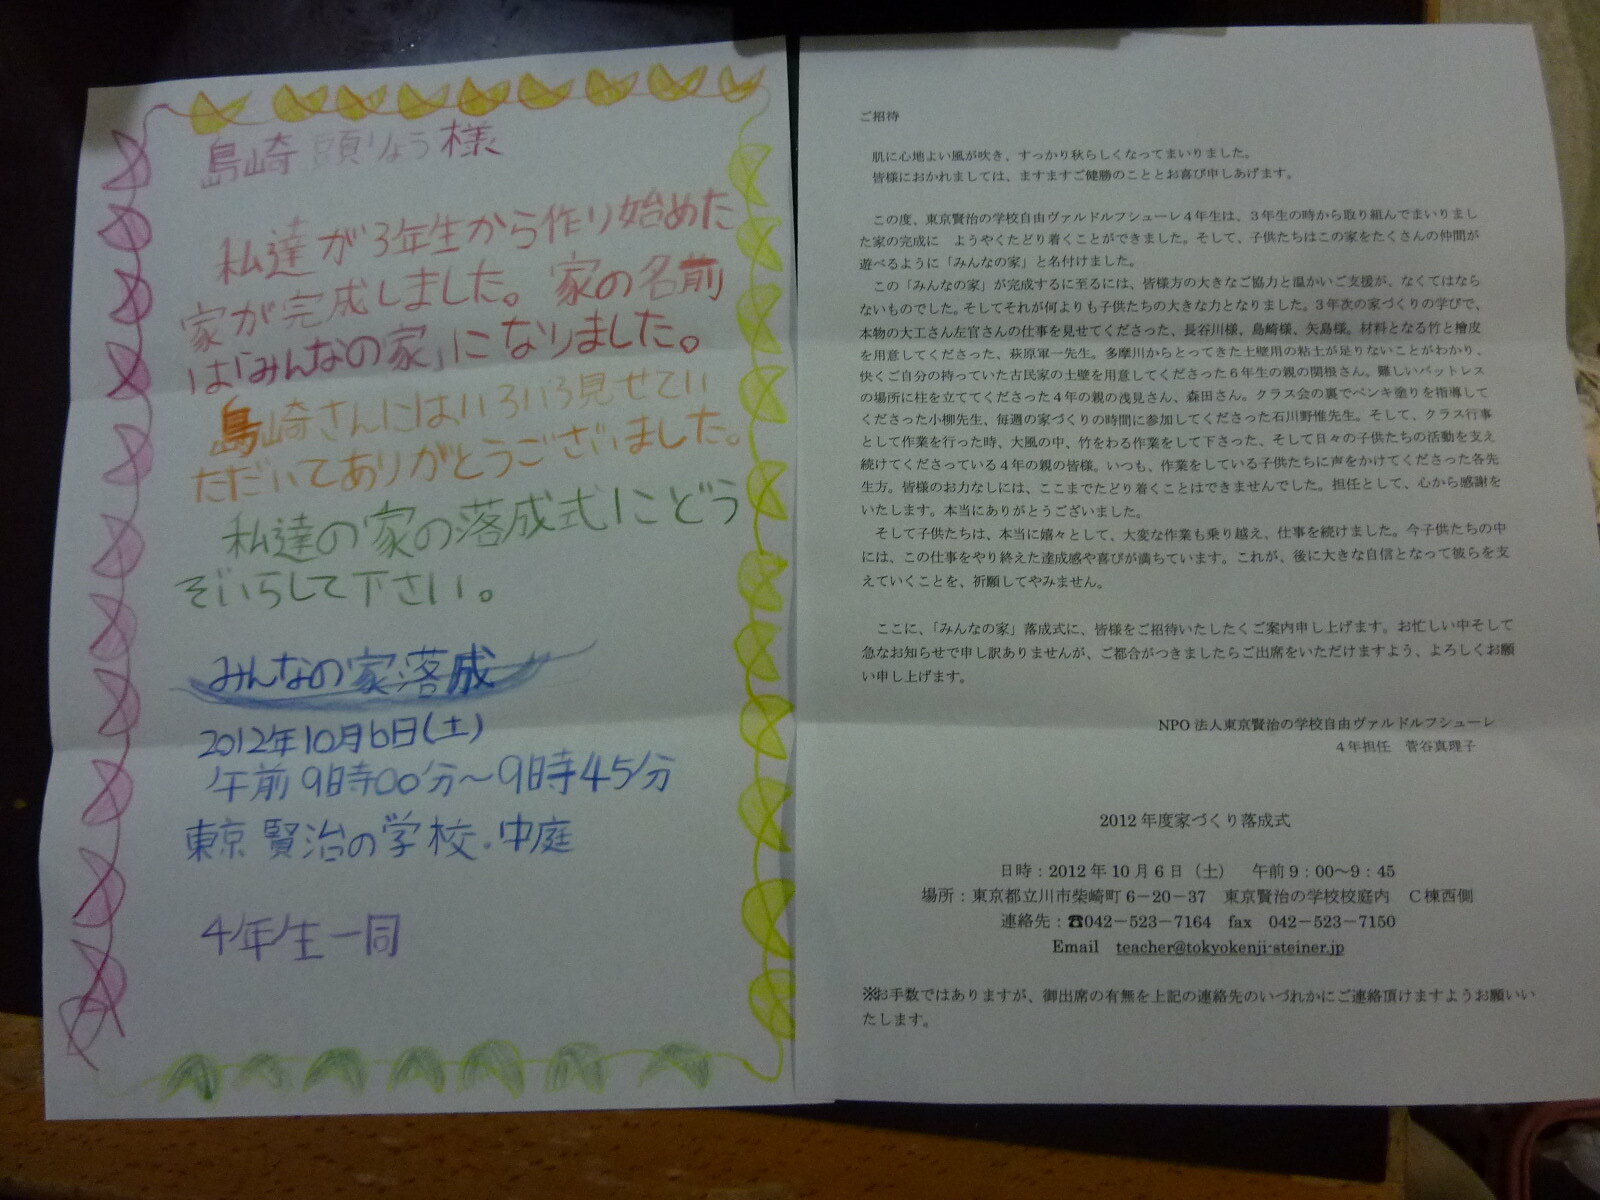 島崎 頭りょう様
私達が3年生から作り始めた
家が完成しました。家の名前
は「みんなの家」になりました。
島崎さんにはいろいろ見せてい
ただいてありがとうございました。
私達の家の落成式にどう
ぞいらして下さい。
みんなの家落成
2012年10月6日(土)
午前9時00分～9時45分
東京賢治の学校.中庭
4年生一同
ご招待
肌に心地よい風が吹き、すっかり秋らしくなってまいりました。
皆様におかれましては、ますますご健勝のこととお喜び申しあげます。
この度、東京賢治の学校自由ヴァルドルフシューレ４年生は、３年生の時から取り組んでまいりまし
た家の完成に　ようやくたどり着くことができました。そして、子供たちはこの家をたくさんの仲間が
遊べるように「みんなの家」と名付けました。
この「みんなの家」が完成するに至るには、皆様方の大きなご協力と温かいご支援が、なくてはなら
ないものでした。そしてそれが何よりも子供たちの大きな力となりました。３年次の家づくりの学びで、
本物の大工さん左官さんの仕事を見せてくださった、長谷川様、島崎様、矢島様。材料となる竹と檜皮
を用意してくださった、萩原軍一先生。多摩川からとってきた土壁用の粘土が足りないことがわかり、
快くご自分の持っていた古民家の土壁を用意してくださった６年生の親の関根さん。難しいバットレス
の場所に柱を立ててくださった４年の親の浅見さん、森田さん。クラス会の裏でペンキ塗りを指導して
くださった小柳先生、毎週の家づくりの時間に参加してくださった石川野惟先生。そして、クラス行事
として作業を行った時、大風の中、竹をわる作業をして下さった、そして日々の子供たちの活動を支え
続けてくださっている４年の親の皆様。いつも、作業をしている子供たちに声をかけてくださった各先
生方。皆様のお力なしには、ここまでたどり着くことはできませんでした。担任として、心から感謝を
いたします。本当にありがとうございました。
そして子供たちは、本当に嬉々として、大変な作業も乗り越え、仕事を続けました。今子供たちの中
には、この仕事をやり終えた達成感や喜びが満ちています。これが、後に大きな自信となって彼らを支
えていくことを、祈願してやみません。
ここに、「みんなの家」落成式に、皆様をご招待いたしたくご案内申し上げます。お忙しい中そして
急なお知らせで申し訳ありませんが、ご都合がつきましたらご出席をいただけますよう、よろしくお願
い申し上げます。
NPO 法人東京賢治の学校自由ヴァルドルフシューレ
４年担任　菅谷真理子
2012 年度家づくり落成式
日時：2012 年 10 月 6 日（土）　午前 9：00～9：45
場所：東京都立川市柴崎町 6－20－37　東京賢治の学校校庭内　Ｃ棟西側
連絡先：☎042－523－7164　fax　042－523－7150
Email　teacher@tokyokenji-steiner.jp
※お手数ではありますが、御出席の有無を上記の連絡先のいづれかにご連絡頂けますようお願いい
たします。